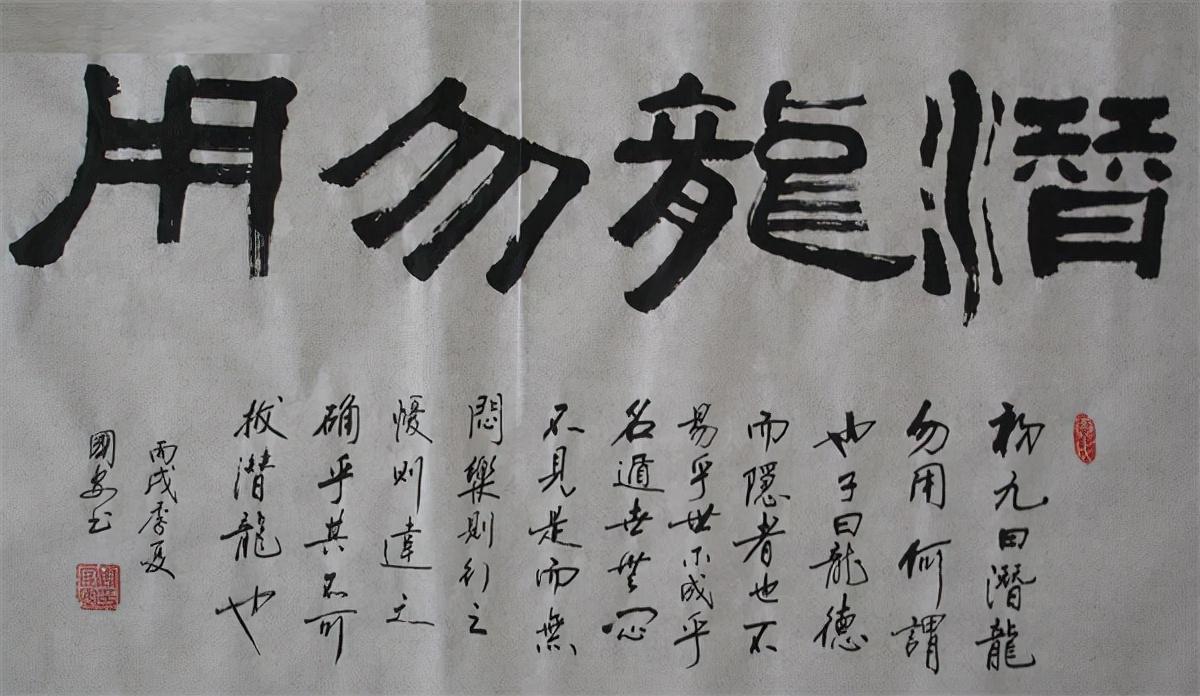 潛龍勿用
初九曰潛龍
勿用何謂
也子曰龍德
而隱者也不
易乎世不成乎
名遁世無悶
不見是而無
悶樂則行之
懮則違之
确乎其不可
拔潛龍也
丙戌季夏
國安书